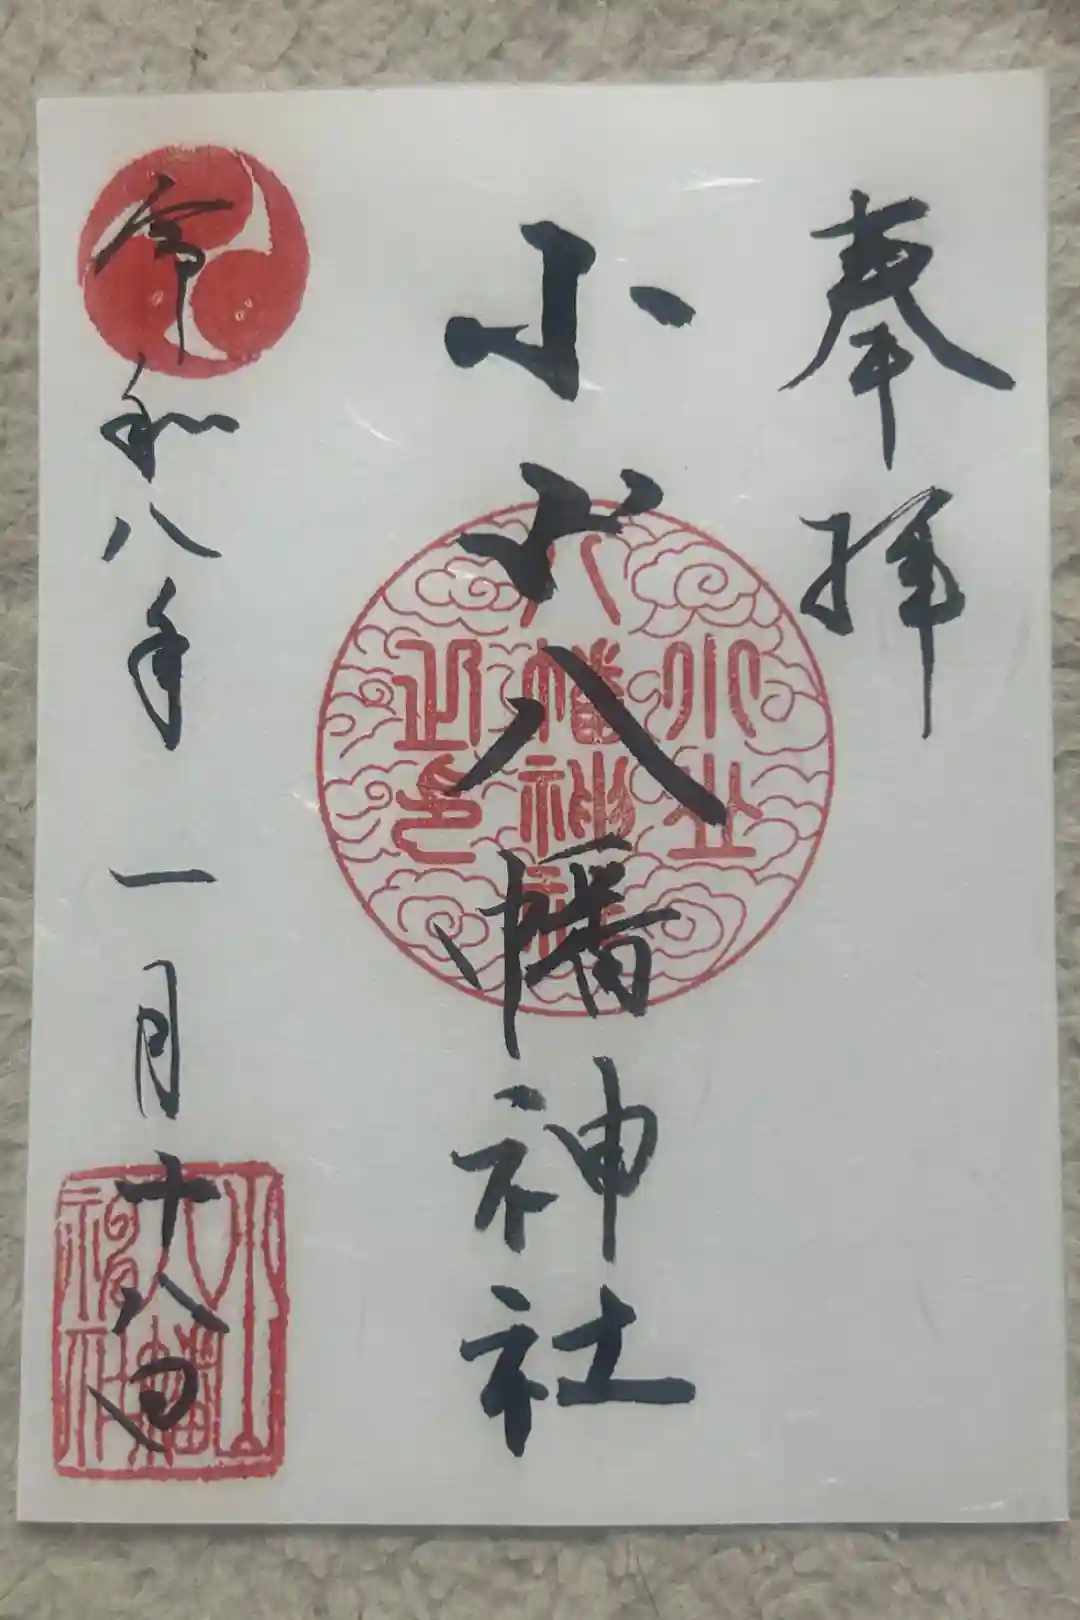 奉拝
小山八幡神社
令和八年一月十八日
小山
八幡神社
小山八幡神社